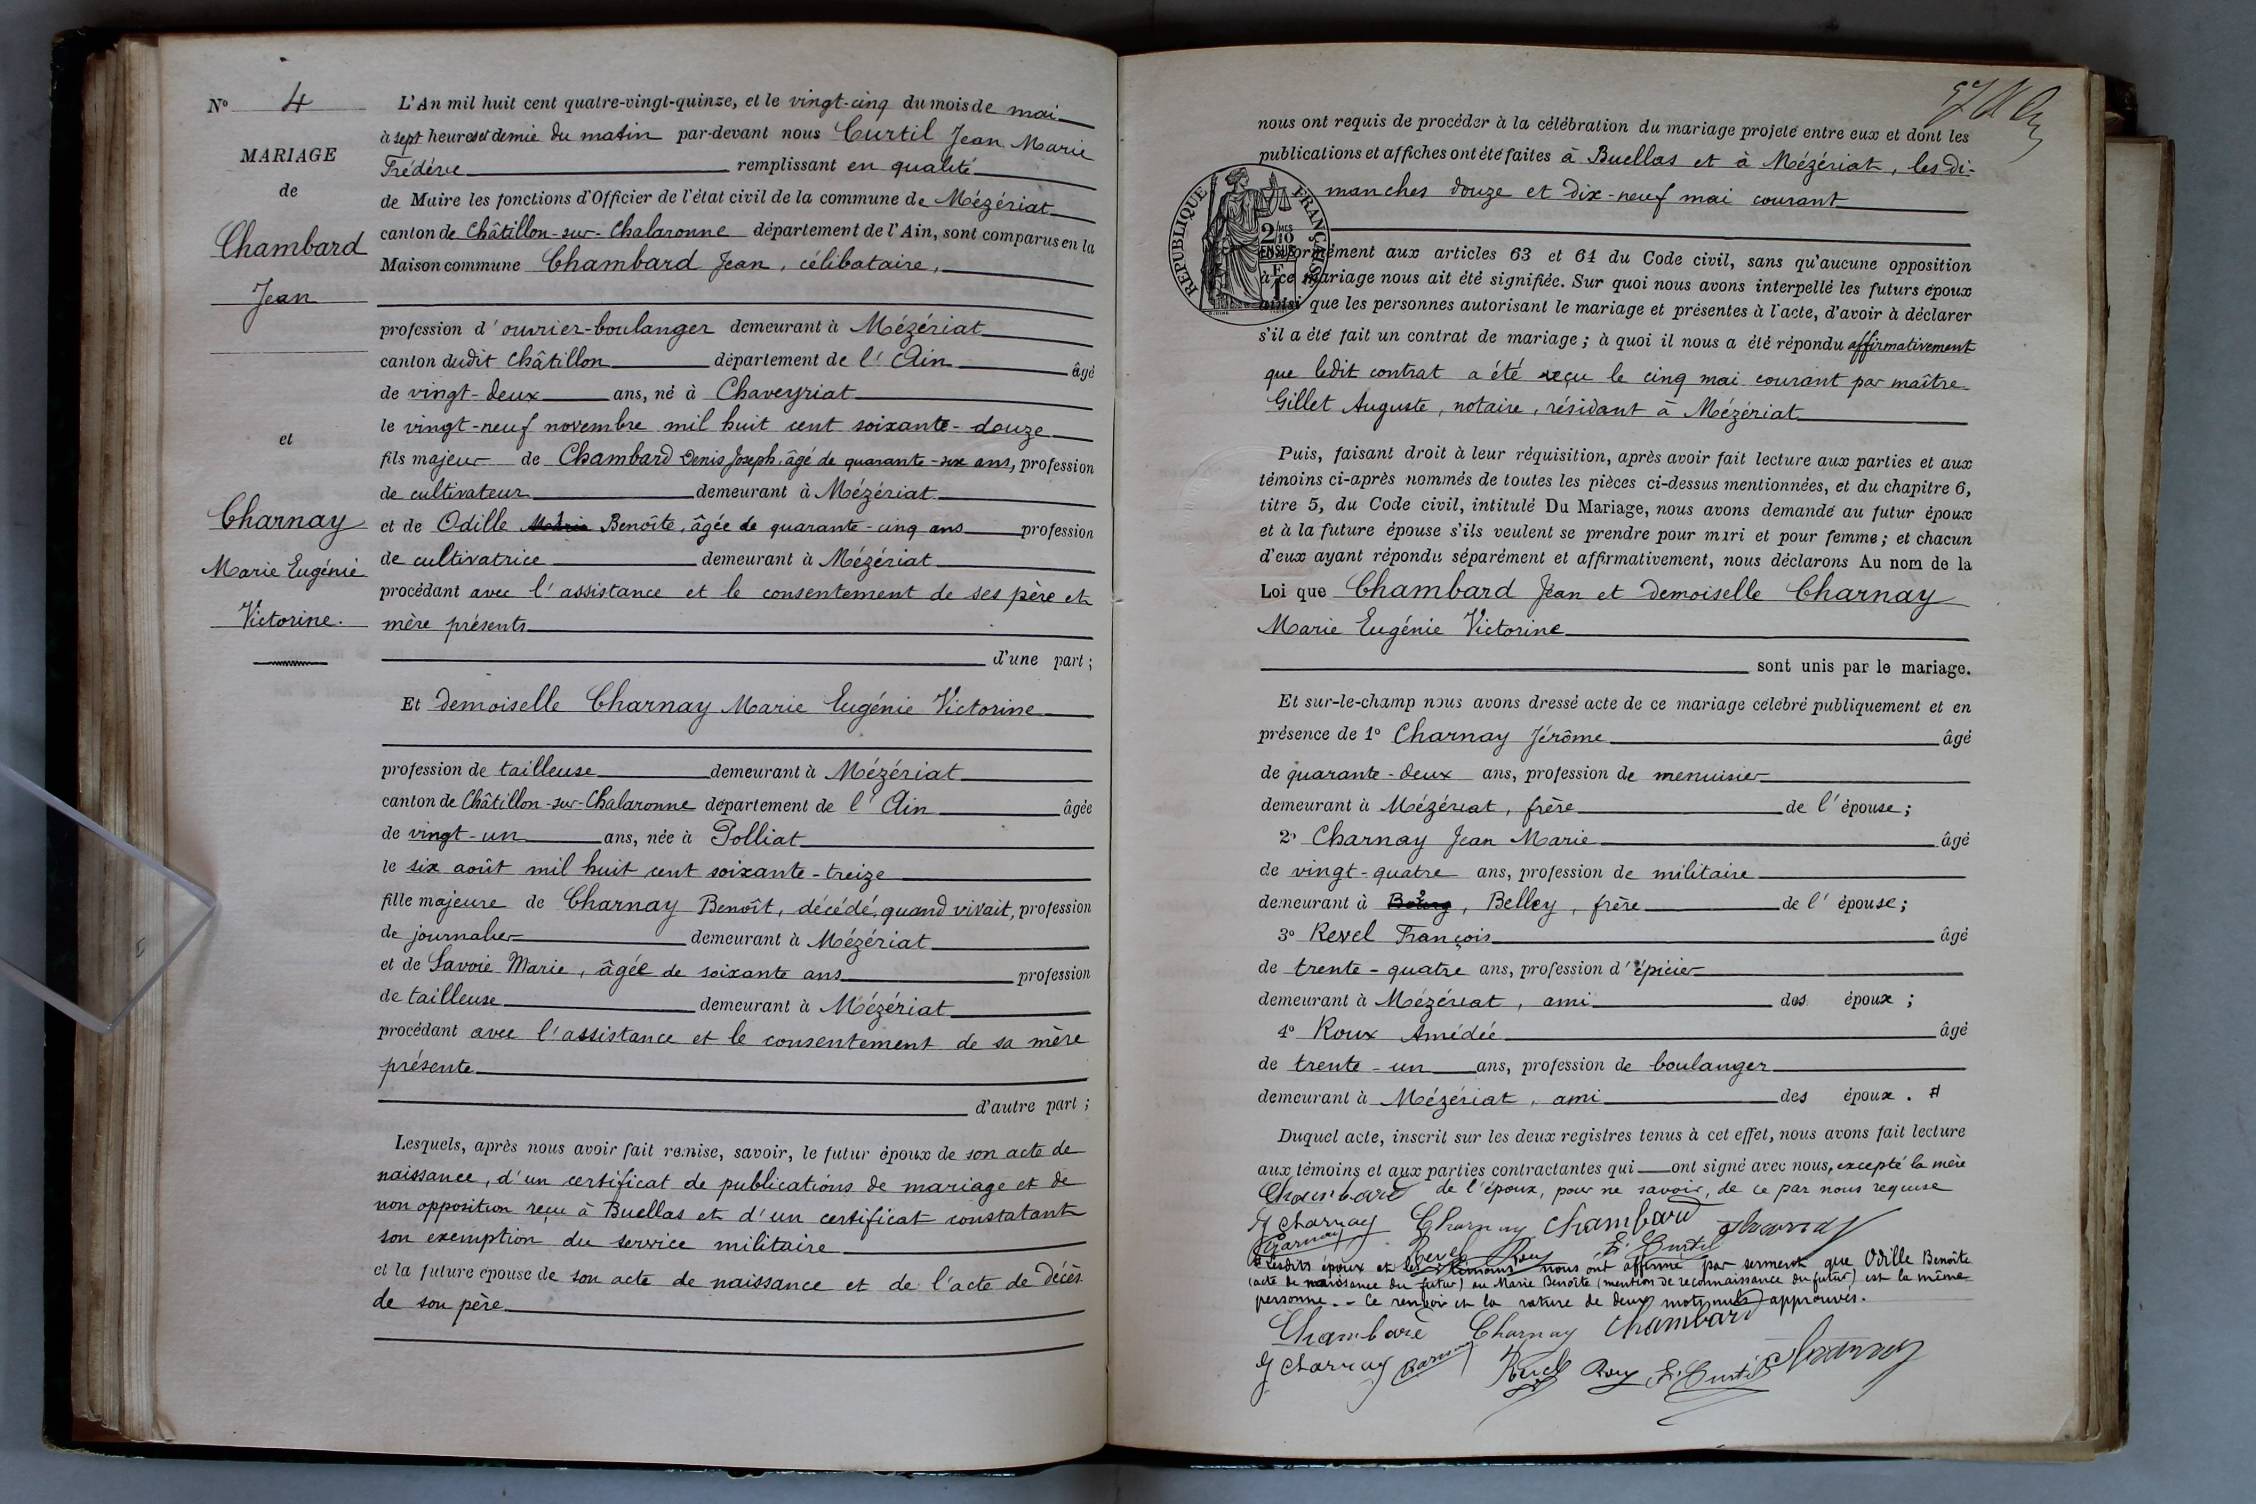 Nº 4
MARIAGE
de
Chambard
Jean
et
Charnay
Marie Eugénie
Victorine.
L'An mil huit cent quatre-vingt-quinze, et le vingt-cinq du mois de mai
à sept heures et demie du matin par-devant nous Curtil Jean Marie
Frédéric remplissant en qualité
de Maire les fonctions d'Officier de l'état civil de la commune de Mézériat
canton de Châtillon-sur-Chalaronne département de l'Ain, sont comparus en la
Maison commune Chambard Jean, célibataire,
profession d'ouvrier-boulanger demeurant à Mézériat
canton dudit Châtillon département de l'Ain âgé
de vingt-deux ans, né à Chaveyriat
le vingt-neuf novembre mil huit cent soixante-douze
fils majeur de Chambard Denis Joseph, âgé de quarante-six ans, profession
de cultivateur demeurant à Mézériat
et de Odille Benoîte, âgée de quarante-cinq ans profession
de cultivatrice demeurant à Mézériat
procédant avec l'assistance et le consentement de ses père et
mère présents
d'une part;
Et demoiselle Charnay Marie Eugénie Victorine
profession de tailleuse demeurant à Mézériat
canton de Châtillon-sur-Chalaronne département de l'Ain âgée
de vingt-un ans, née à Polliat
le six août mil huit cent soixante-treize
fille majeure de Charnay Benoît, décédé, quand vivait, profession
de journalier demeurant à Mézériat
et de Savoie Marie, âgée de soixante ans profession
de tailleuse demeurant à Mézériat
procédant avec l'assistance et le consentement de sa mère
présente
d'autre part;
Lesquels, après nous avoir fait remise, savoir, le futur époux de son acte de
naissance, d'un certificat de publications de mariage et de
non opposition reçu à Buellas et d'un certificat constatant
son exemption du service militaire
et la future épouse de son acte de naissance et de l'acte de décès
de son père
nous ont requis de procéder à la célébration du mariage projeté entre eux et dont les
publications et affiches ont été faites à Buellas et à Mézériat, les di-
manches douze et dix-neuf mai courant
RÉPUBLIQUE FRANÇAISE
2/10 EN SUS
conformément aux articles 63 et 64 du Code civil, sans qu'aucune opposition
à ce mariage nous ait été signifiée. Sur quoi nous avons interpellé les futurs époux
ainsi que les personnes autorisant le mariage et présentes à l'acte, d'avoir à déclarer
s'il a été fait un contrat de mariage; à quoi il nous a été répondu affirmativement
que ledit contrat a été reçu le cinq mai courant par maître
Gillet Auguste, notaire, résidant à Mézériat
Puis, faisant droit à leur réquisition, après avoir fait lecture aux parties et aux
témoins ci-après nommés de toutes les pièces ci-dessus mentionnées, et du chapitre 6,
titre 5, du Code civil, intitulé Du Mariage, nous avons demandé au futur époux
et à la future épouse s'ils veulent se prendre pour mari et pour femme; et chacun
d'eux ayant répondu séparément et affirmativement, nous déclarons Au nom de la
Loi que Chambard Jean et demoiselle Charnay
Marie Eugénie Victorine
sont unis par le mariage.
Et sur-le-champ nous avons dressé acte de ce mariage célébré publiquement et en
présence de 1º Charnay Jérôme âgé
de quarante-deux ans, profession de menuisier
demeurant à Mézériat, frère de l'épouse;
2º Charnay Jean Marie âgé
de vingt-quatre ans, profession de militaire
demeurant à Bourg, Belley, frère de l'épouse;
3º Revel François âgé
de trente-quatre ans, profession d'épicier
demeurant à Mézériat, ami des époux;
4º Roux Amédée âgé
de trente-un ans, profession de boulanger
demeurant à Mézériat, ami des époux. #
Duquel acte, inscrit sur les deux registres tenus à cet effet, nous avons fait lecture
aux témoins et aux parties contractantes qui ont signé avec nous, excepté la mère
de l'époux, pour ne savoir, de ce par nous requise
Chambard
J Charnay Charnay Chambard Charnay
Charnay Revel Roux F. Curtil
# Lesdits époux et les témoins nous ont affirmé par serment que Odille Benoîte
(acte de naissance du futur) ou Marie Benoîte (mention de reconnaissance du futur) est la même
personne. - Ce renvoi et la rature de deux mots nuls approuvés.
Chambard Charnay Chambard
J Charnay Charnay Revel Roux F. Curtil Charnay